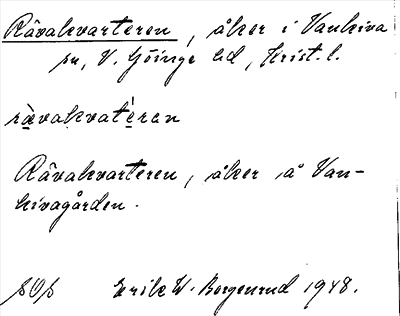 Rävakvarteren, åker i Vankiva
sn, V. Göinge hd, Krist. l.
rävakvatéran
Rävakvarteren, åker å Van-
kivagården.
SOS Erik W. Borgenrud 1948.